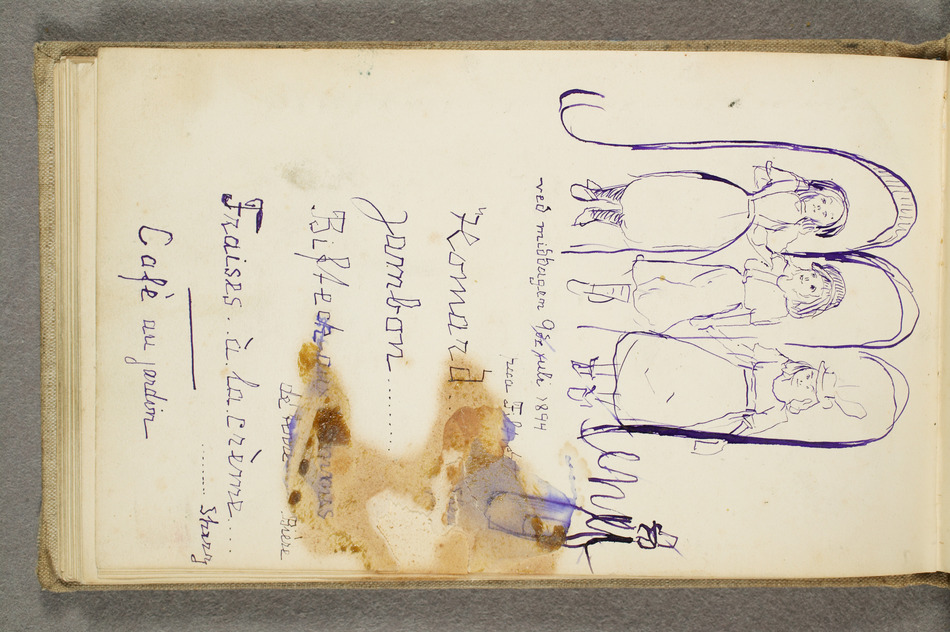 Menuen
ved middagen 9de juli 1894
Homard
Jambon .........
Bifteck au
Bière
Fraises .. à la crème ....
....... Sherry
Café au jardin